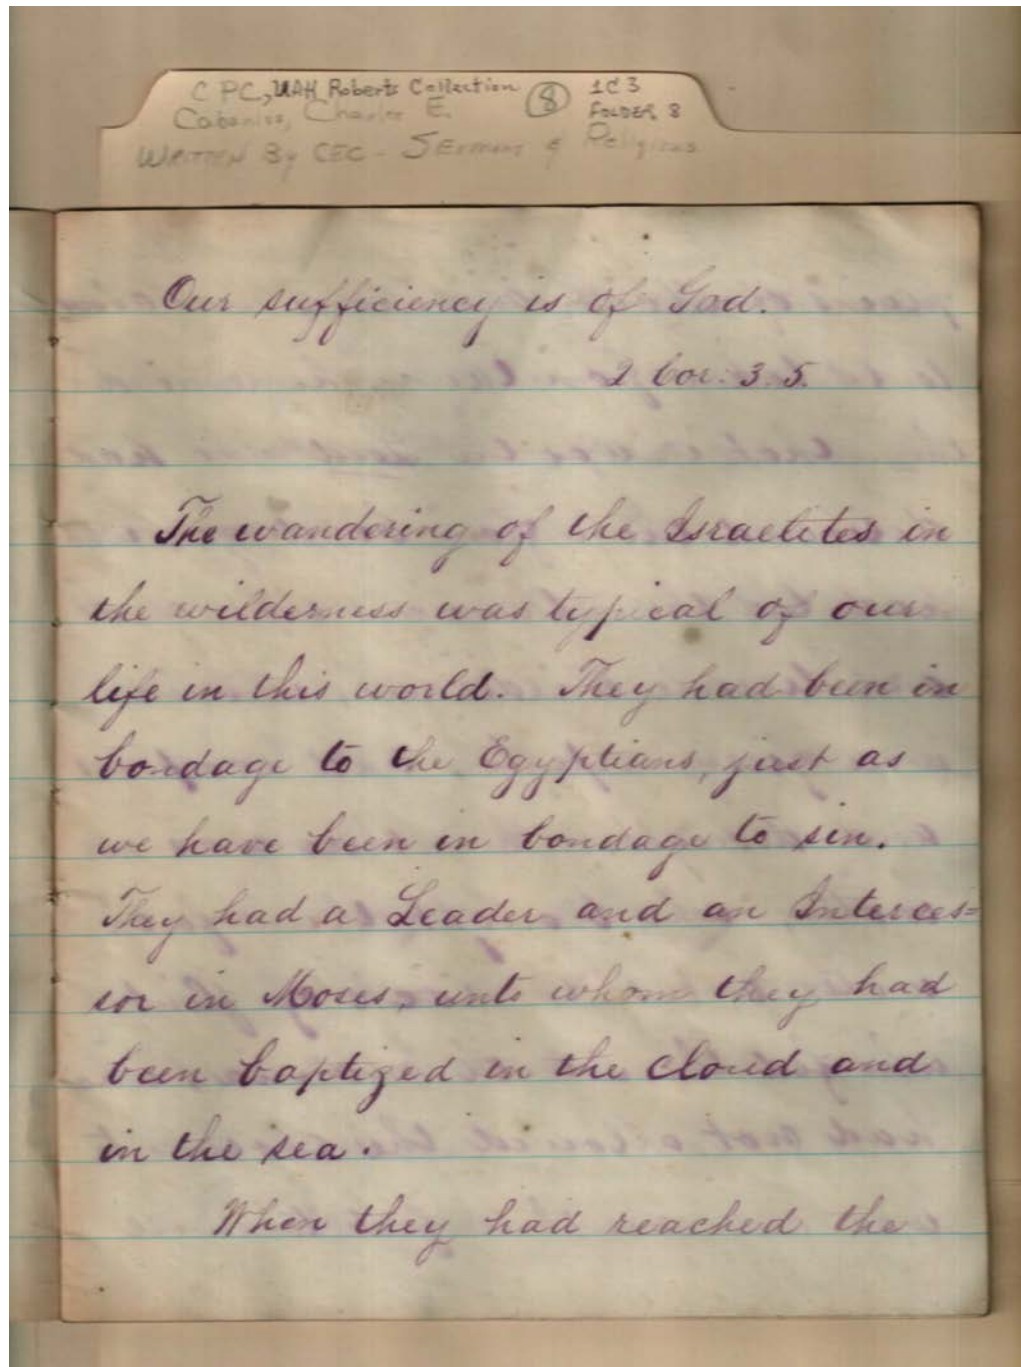 C PC, UAH Roberts Collection ⑧ 1C3
Cabaniss, Charles E. FOLDER 8
WRITTEN By CEC - SERMONS & Religious
Our sufficiency is of God.
2 Cor. 3.5.
The wandering of the Israelites in
the wilderness was typical of our
life in this world. They had been in
bondage to the Egyptians, just as
we have been in bondage to sin.
They had a Leader and an Interces=
sor in Moses, unto whom they had
been baptized in the cloud and
in the sea.
When they had reached the